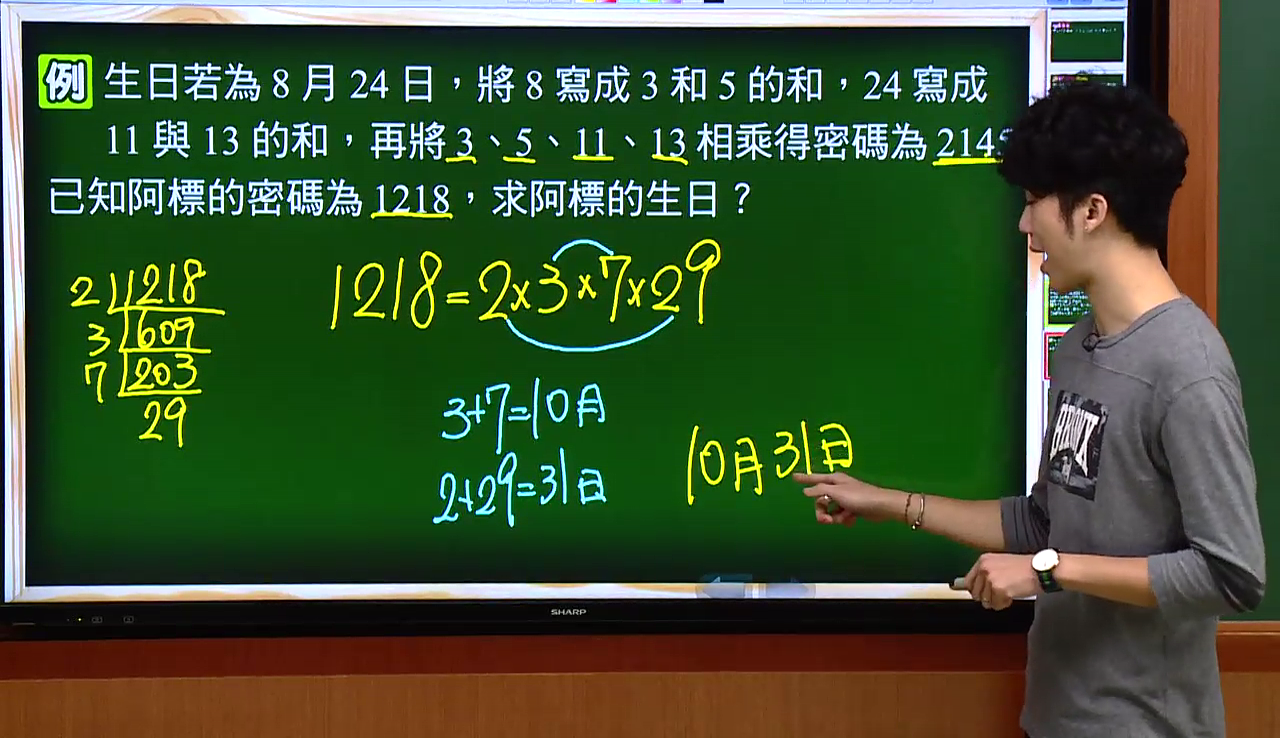 例 生日若為 8 月 24 日，將 8 寫成 3 和 5 的和，24 寫成
11 與 13 的和，再將 3、5、11、13 相乘得密碼為 214
已知阿標的密碼為 1218，求阿標的生日？
2 1218
3 609
7 203
29
1218=2×3×7×29
3+7=10月
2+29=31日
10月31日
SHARP